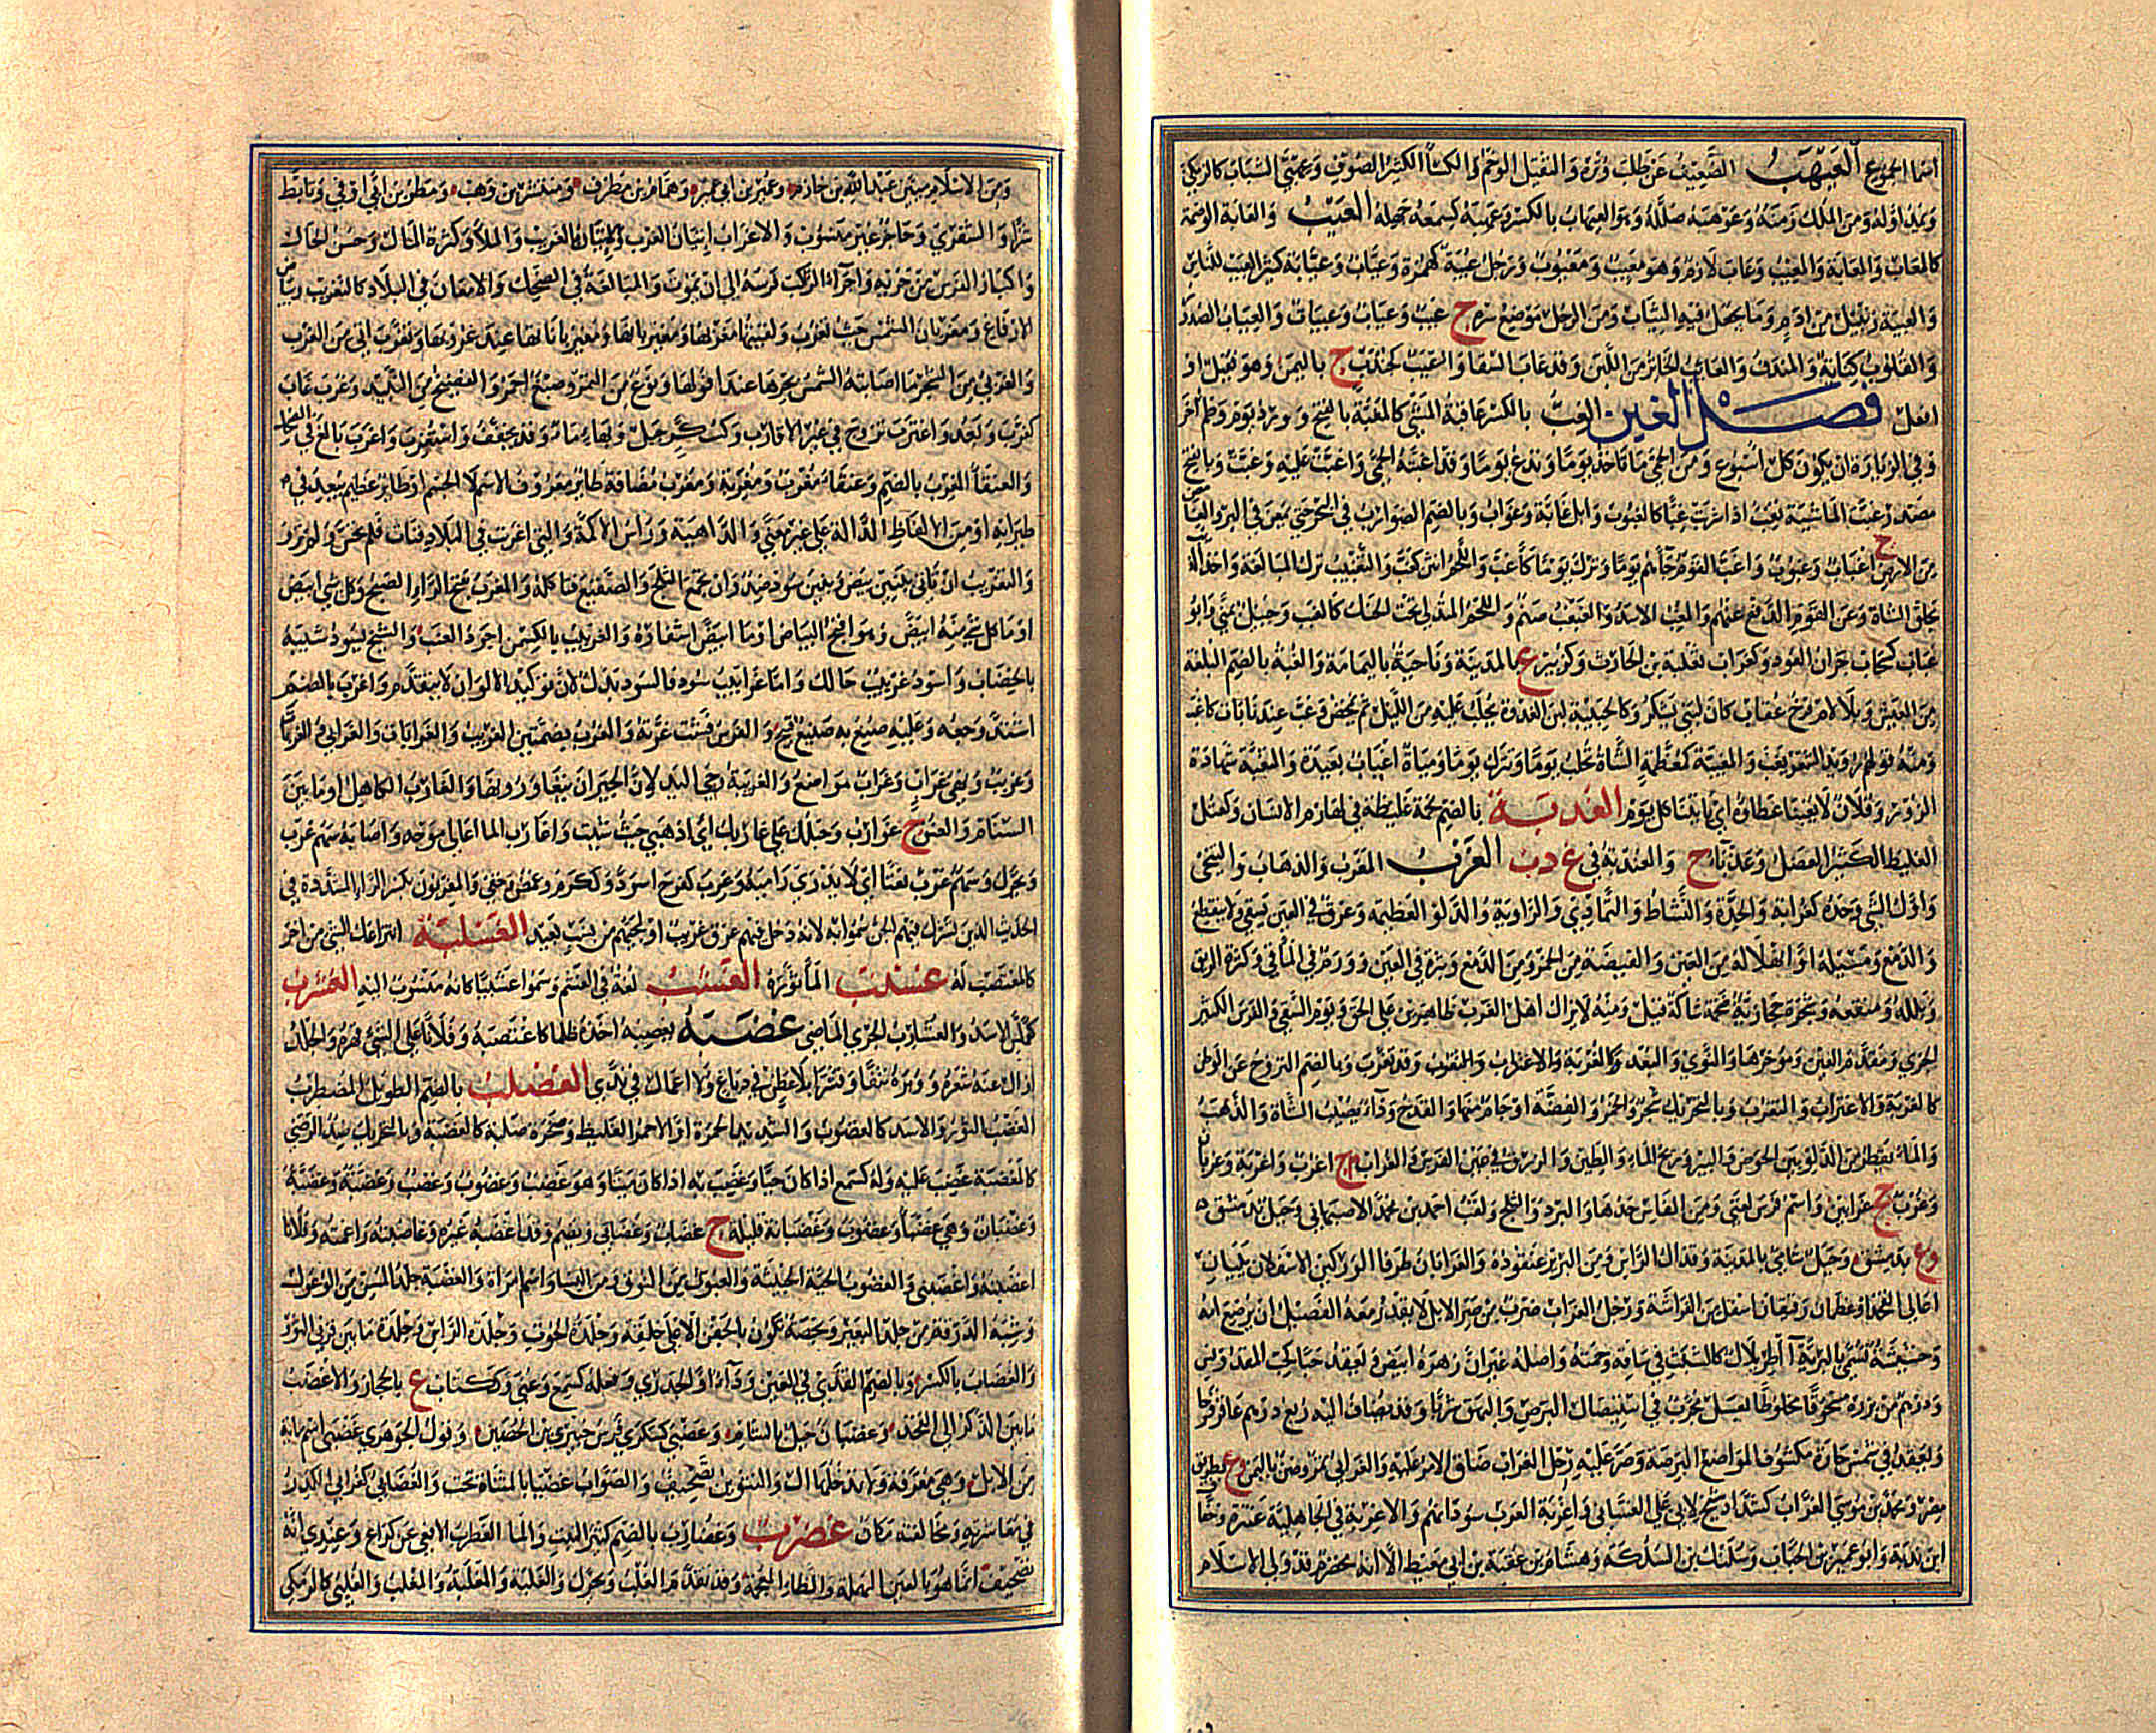 اسما الجموع العَيْهَبُ الضعيف عن طلب وتره والثقيل الوخم والكساء الكثير الصوف وعهبى الشباب كالزمكى
ويمد اوله ومن الملك زمنه وعوهبه ضلله وهو العيهاب بالكسر وعهبه كسمعه جهله العيب والعابة الوصمة
كالمعاب والمعابة والمعيب وعاب لازم وهو معيب ومعيوب ورجل عيبة كهمزة وعياب وعيابة كثير العيب للناس
والعيبة زبيل من ادم وما يجعل فيه الثياب ومن الرجل موضع سره ج عيب وعياب وعيبات والعياب الصدور
والقلوب كناية والمندف والعايب الخاثر من اللبن وقد عاب السقا والعيب كجندب ج باليمن وهو فيعل او
افعل فصل الغين الغب بالكسر عاقبة الشئ كالمغبة بالفتح وورد يوم وظم آخر
وفي الزيارة ان يكون كل اسبوع ومن الحمى ما تاخذ يوما وتدع يوما وقد اغبته الحمى واغبت عليه وغبت وبالفتح
مصدر غبت الماشية تغب اذا شربت غبا كالغبوب وابل غابة وغواب وبالضم الضارب في البحر حتى يمعن في البر والغامض
من الارض ج اغباب وغبوب واغب القوم جآهم يوما وترك يوما كاغب واللحم انتن كغب والتغبيب ترك المبالغة واخذ
بحلق الشاة وعن القوم الدفع عنهم والغبغب الاسد والغبغب صنم واللحم المتدلي تحت الحنك كالغبب وجبل بمنى وابو
غباب كسحاب جران العود وكغراب ثعلبة بن الحارث وكزبير ع بالمدينة وناحية باليمامة والغبة بالضم البلغة
من العيش وبلا لام فرخ عقاب كان لبني يشكر وكالحبيبة لبن الغدوة يحلب عليه من الليل ثم يمخض وغب عندنا بات كاغب
ومنه قولهم رويد الشعر يغب والمغببة كمعظمة الشاة تحلب يوما وتترك يوما ومياه اغباب بعيدة والتغبة شهادة
الزور وفلان لا يغبنا عطاوه اي ياتينا كل يوم الغدبة بالضم لحمة غليظة في لهازم الانسان وكعتل
الغليظ الكثير العضل وغدبآ ج والغندبة في غ د ب الغرب المغرب والذهاب والتنحي
واول الشئ وحده كغرابه والحدة والنشاط والتمادي والراوية والدلو العظيمة وعرق في العين يسقي لا ينقطع
والدمع ومسيله او انهلاله من العين والفيضة من الخمر ومن الدمع وبثرة في العين وورم في المآقي وكثرة الريق
وبلله ومنقعه وشجرة حجازية ضخمة شاكة قيل ومنه لا يزال اهل الغرب ظاهرين على الحق ويوم السقي والفرس الكثير
الجري ومقدم العين ومؤخرها والنوى والبعد كالغربة والاغتراب والتغرب وقد تغرب وبالضم النزوح عن الوطن
كالغربة والاغتراب والتغرب وبالتحريك شجر والخمر والفضة او جام منها والقدح ودآء يصيب الشاة والذهب
والماء يقطر من الدلو بين الحوض والبير وريح الماء والطين والزرق في عين الفرس والغراب م ج اغرب واغربة وغربان
وغرب جج غرابين واسم فرس لغني ومن الفاس حدها والبرد والثلج ولقب احمد بن محمد الاصبهاني وجبل بدمشق
وع بدمشق وجبل شامي بالمدينة وقذال الراس ومن البرير عنقوده والغرابان طرفا الوركين الاسفلان يليان
اعالي الفخذ او عظمان رقيقان اسفل من الفراشة ورجل الغراب ضرب من صر الابل لا يقدر معه الفصيل ان يرضع امه
وحشيشة تسمى بالبربرية آاطريلال كالشبث في ساقه وجمته واصله غير ان زهره ابيض ويعقد حبا كحب المقدونس
ودرهم من بزره مسحوقا مخلوطا بالعسل مجرب في استيصال البرص والبهق شربا وقد يضاف اليه ربع درهم عاقرقرحا
ويقعد في شمس حارة مكشوف المواضع البرصة وصر عليه رجل الغراب ضاق الامر عليه والغرابي ثمر وحصن باليمن وع بطريق
مصر ومحمد بن موسى الغراب كشداد شيخ لابي علي الغساني واغربة العرب سودانهم والاغربة في الجاهلية عنترة وخفاف
ابن ندبة وابو عمير بن الحباب وسليك بن السلكة وهشام بن عقبة بن ابي معيط الا انه مخضرم قد ولي الاسلام
ومن الاسلاميين عبد الله بن خازم وعمير بن ابي عمير وهمام بن مطرف ومنتشر بن وهب ومطر بن ابي اوفى وتابط
شرا والشنفرى وحاجز غير منسوب والاغراب اتيان الغرب والاتيان بالغريب والملأ وكثرة المال وحسن الحال
واكثار الفرس من جريه واجرآ الراكب فرسه الى ان يموت والمبالغة في الضحك والامعان في البلاد كالتغريب وبياض
الارفاغ ومغربان الشمس حيث تغرب ولقيته مغربها ومغيربانها ومغيرباناتها عند غروبها وتغرب اتى من الغرب
والغربي من الشجر ما اصابته الشمس بحرها عند افولها ونوع من التمر وصبغ احمر والفضيخ من النبيذ وغرب غاب
كغرب وبعد واغترب تزوج في غير الاقارب وككسر جبل وبهاء ماءة وقد يخفف واستغرب واغرب بالغ في الضحك
والعنقآ المغرب بالضم وعنقاء مغرب ومغربة ومغرب مضافة طائر معروف الاسم لا الجسم او طائر عظيم يبعد في
طيرانه او من الالفاظ الدالة على غير معنى والداهية وراس الاكمة والتي اغربت في البلاد فنات فلم تحس ولم تر
والتغريب ان تاتي ببنين بيض وبنين سود ضد وان تجمع الثلج والصقيع فتاكله والمغرب بفتح الرآء الصبح وكل شئ ابيض
او ما كل شئ منه ابيض وهو اقبح البياض او ما ابيض اشفاره والغربيب بالكسر من اجود العنب والشيخ يسود شيبه
بالخضاب واسود غربيب حالك واما غرابيب سود فالسود بدل لان توكيد الالوان لا يتقدم واغرب بالضم
اشتد وجعه وعليه صنع به صنيع قبيح والفرس فشت غرته والغرب بضمتين الغريب والغرابات والغرابي والغربات
وغريب ونهي غراب وغراب مواضع والغريبة رحى اليد لان الجيران يتعاورونها والغارب الكاهل او ما بين
السنام والعنق ج غوارب وحبلك على غاربك اي اذهبي حيث شئت وغوارب الما اعالي موجه واصابه سهم غرب
ويحرك وسهم غرب نعتا اي لا يدرى راميه وغرب كفرح اسود وككرم غمض وخفي والمغربون بكسر الرآء المشددة في
الحديث الذين تشرك فيهم الجن سموا به لانه دخل فيهم عرق غريب او لمجيئهم من نسب بعيد الغسلبة انتزاعك الشئ من اخر
كالمغتصب له غسنب المأ ثوره الغشب لغة في الغشم وسموا غشبيا كانه منسوب اليه الغشرب
كعملس الاسد والغشارب الجرئ الماضي غصبه يغصبه اخذه ظلما كاغتصبه وفلانا على الشئ قهره والجلد
ازال عنه شعره ووبره نتفا وقشرا بلا عطن في دباغ ولا اعمال في ندى الغضلب بالضم الطويل المضطرب
الغضب الثور والاسد كالغضوب والشديد الحمرة او الاحمر الغليظ وصخرة صلبة كالغضبة وبالتحريك ضد الرضى
كالمغضبة غضب عليه وله كسمع اذا كان حيا وغضب به اذا كان ميتا وهو غضب وغضوب وغضب وغضبة وغضبة
وغضبان وهي غضبى وغضوب وغضبانة قليلة ج غضاب وغضابى ويضم وقد اغضبه غيره وغاضبته راغمته وفلانا
اغضبته واغضبني والغضوب الحية الخبيثة والعبوس من النوق ومن النسا واسم امراة والغضبة جلد المسن من الوعول
وشبه الدرقة من جلد البعير وبخصة تكون بالجفن الاعلى خلقة وجلدة الحوت وجلدة الراس وجلدة ما بين قرني الثور
والغضاب بالكسر وبالضم القذى في العين ودآء او الجدري وفعله كسمع وعني وككتاب ع بالحجاز والاغضب
ما بين الذكر الى الفخذ وغضبان جبل بالشام وغضبى كسكرى فرس خيبري بن الحصين وقول الجوهري غضبى اسم مائة
من الابل وهي معرفة ولا يدخلها ال والتنوين تصحيف والصواب غضيا بالمثناة تحت والغضابي كغرابي الكدر
في معاشرته ومخالفته مكان غضرب وغضارب بالضم كثير النبت والما الغطرب الافعى عن كراع وعندي انه
تصحيف انما هو بالعين المهملة والظاء المعجمة وقد تقدم الغلب ويحرك والغلبة والمغلبة والمغلب والغلبى كالزمكى